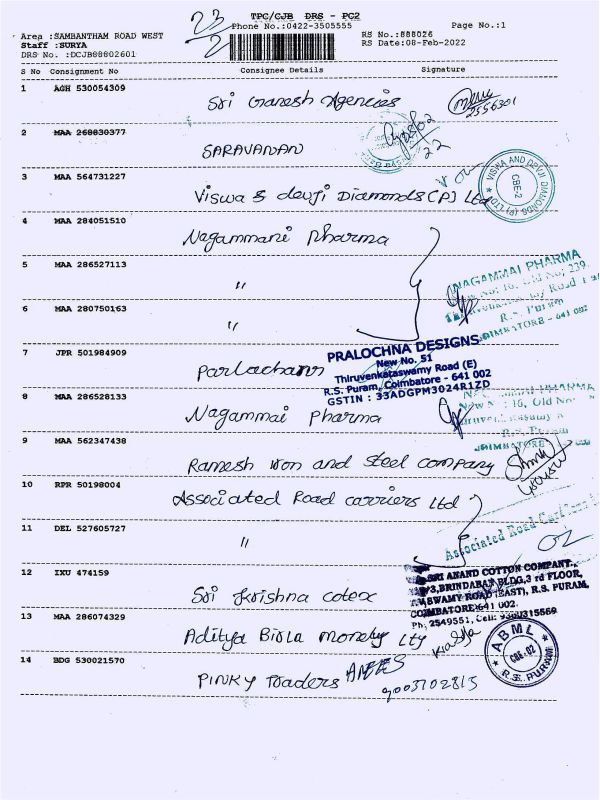 23/2
TPC/CJB DRS - PC2
Phone No.:0422-3505555
Page No.:1
Area :SAMBANTHAM ROAD WEST
Staff :SURYA
DRS No. :DCJB88802601
RS No.:888026
RS Date:08-Feb-2022
S No Consignment No Consignee Details Signature
1 AGH 530054309 Sri Ganesh Agencies
2556301
2 MAA 268830377 SARAVANAN
3 MAA 564731227 Viswa & devji Diamonds (P) Ltd
VISWA AND DEVJI DIAMONDS (P) LTD
CBE-2
4 MAA 284051510 Nagammani Pharma
5 MAA 286527113 "
NAGAMMAI PHARMA
New No: 16, Old No: 239,
R.S. Puram
COIMBATORE - 641 002
6 MAA 280750163 "
7 JPR 501984909
PRALOCHNA DESIGNS
New No. 51
Thiruvenkataswamy Road (E)
R.S. Puram, Coimbatore - 641 002
GSTIN : 33ADGPM3024R1ZD
8 MAA 286528133 Nagammai Pharma
9 MAA 562347438 Ramesh iron and steel company
10 RPR 50198004 Associated Road carriers Ltd
11 DEL 527605727 "
Associated Road
12 IXU 474159 Sri Krishna cotex
SRI ANAND COTTON COMPANY.,
BRINDABAN BLDG, 3 rd FLOOR,
SWAMY ROAD (EAST), R.S. PURAM,
COIMBATORE 641 002.
Ph: 2549551, Cell: 9360315569
13 MAA 286074329 Aditya Birla money Lty
ABML
CBE-02
R.S. PURAM
14 BDG 530021570 PINKY Traders
9003702815